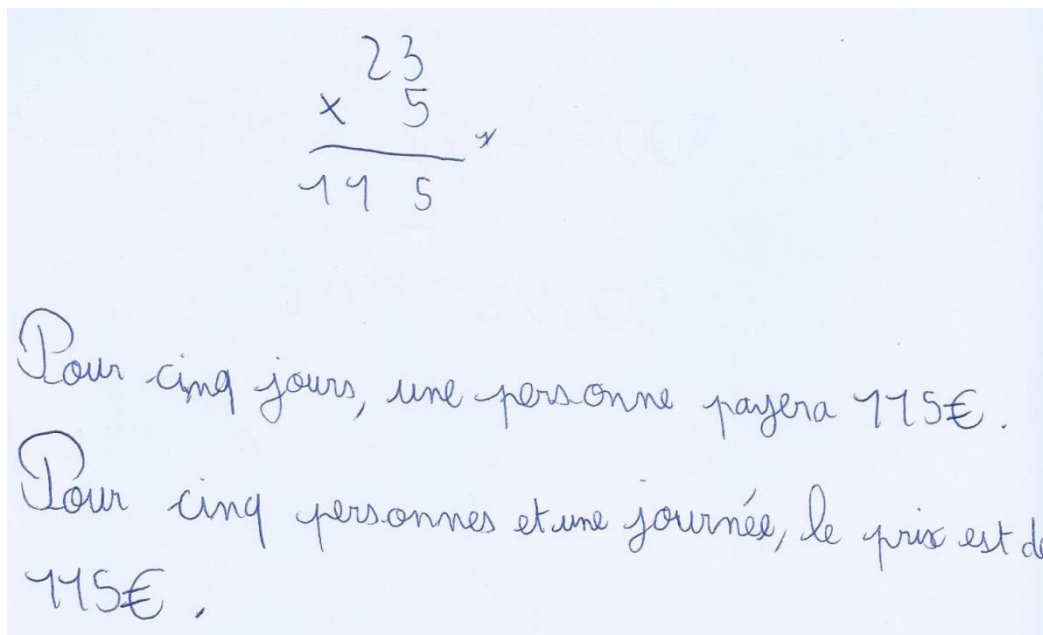 23
x 5
115
Pour cinq jours, une personne payera 115€.
Pour cinq personnes et une journée, le prix est de
115€.